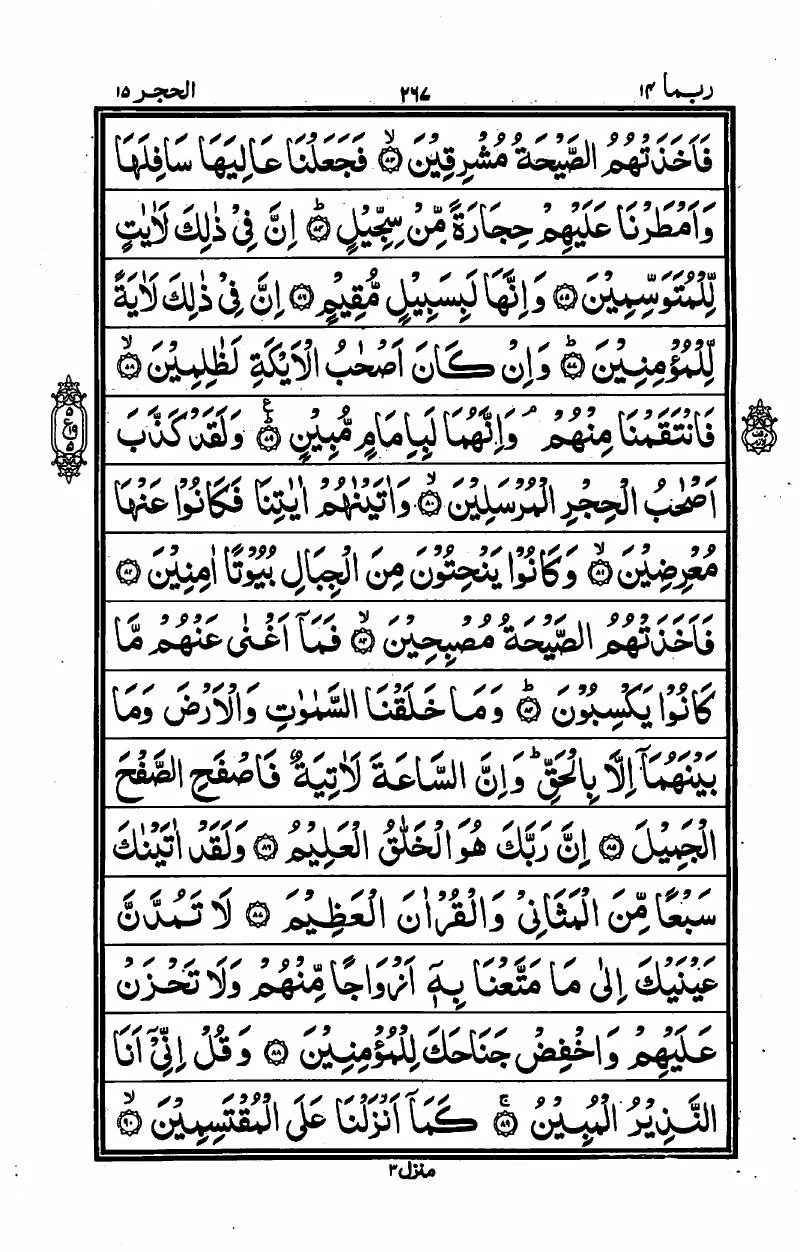 ربما ۱۴
۲۶۷
الحجر ۱۵
فَاَخَذَتْهُمُ الصَّيْحَةُ مُشْرِقِيْنَ ۙ‏﴿۷۳﴾ فَجَعَلْنَا عَالِيَهَا سَافِلَهَا
وَاَمْطَرْنَا عَلَيْهِمْ حِجَارَةً مِّنْ سِجِّيْلٍ ؕ‏﴿۷۴﴾ اِنَّ فِىْ ذٰلِكَ لَاٰيٰتٍ
لِّلْمُتَوَسِّمِيْنَ‏﴿۷۵﴾ وَاِنَّهَا لَبِسَبِيْلٍ مُّقِيْمٍ‏﴿۷۶﴾ اِنَّ فِىْ ذٰلِكَ لَاٰيَةً
لِّلْمُؤْمِنِيْنَ ؕ‏﴿۷۷﴾ وَاِنْ كَانَ اَصْحٰبُ الْاَيْكَةِ لَظٰلِمِيْنَ ۙ‏﴿۷۸﴾
فَانْتَقَمْنَا مِنْهُمْ ۘ وَاِنَّهُمَا لَبِاِمَامٍ مُّبِيْنٍ ؕ‏﴿۷۹﴾ وَلَقَدْ كَذَّبَ
اَصْحٰبُ الْحِجْرِ الْمُرْسَلِيْنَ ۙ‏﴿۸۰﴾ وَاٰتَيْنٰهُمْ اٰيٰتِنَا فَكَانُوْا عَنْهَا
مُعْرِضِيْنَ ۙ‏﴿۸۱﴾ وَكَانُوْا يَنْحِتُوْنَ مِنَ الْجِبَالِ بُيُوْتًا اٰمِنِيْنَ‏﴿۸۲﴾
فَاَخَذَتْهُمُ الصَّيْحَةُ مُصْبِحِيْنَ ۙ‏﴿۸۳﴾ فَمَاۤ اَغْنٰى عَنْهُمْ مَّا
كَانُوْا يَكْسِبُوْنَ ؕ‏﴿۸۴﴾ وَمَا خَلَقْنَا السَّمٰوٰتِ وَالْاَرْضَ وَمَا
بَيْنَهُمَاۤ اِلَّا بِالْحَقِّ ؕ وَاِنَّ السَّاعَةَ لَاٰتِيَةٌ فَاصْفَحِ الصَّفْحَ
الْجَمِيْلَ‏﴿۸۵﴾ اِنَّ رَبَّكَ هُوَ الْخَلّٰقُ الْعَلِيْمُ‏﴿۸۶﴾ وَلَقَدْ اٰتَيْنٰكَ
سَبْعًا مِّنَ الْمَثَانِىْ وَالْقُرْاٰنَ الْعَظِيْمَ‏﴿۸۷﴾ لَا تَمُدَّنَّ
عَيْنَيْكَ اِلٰى مَا مَتَّعْنَا بِهٖۤ اَزْوَاجًا مِّنْهُمْ وَلَا تَحْزَنْ
عَلَيْهِمْ وَاخْفِضْ جَنَاحَكَ لِلْمُؤْمِنِيْنَ‏﴿۸۸﴾ وَقُلْ اِنِّىْۤ اَنَا
النَّذِيْرُ الْمُبِيْنُ ۚ‏﴿۸۹﴾ كَمَاۤ اَنْزَلْنَا عَلَى الْمُقْتَسِمِيْنَ ۙ‏﴿۹۰﴾
منزل ۳